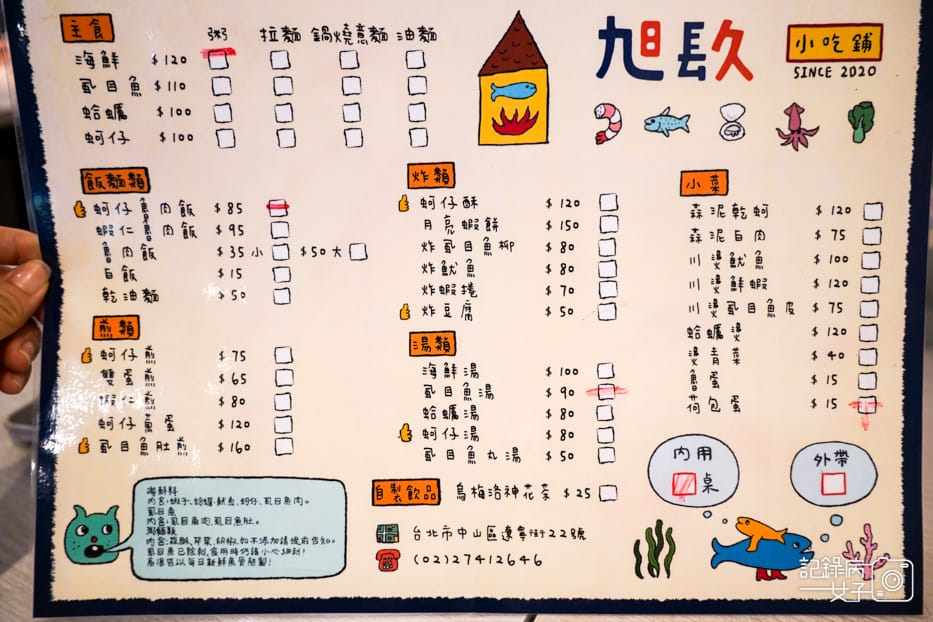 旭 镹
小吃鋪
SINCE 2020
主食 粥 拉麵 鍋燒意麵 油麵
海鮮 $120
虱目魚 $110
蛤蠣 $100
蚵仔 $100
飯麵類
蚵仔魯肉飯 $85
蝦仁魯肉飯 $95
魯肉飯 $35 小 $50 大
白飯 $15
乾油麵 $50
煎類
蚵仔煎 $75
雙蛋煎 $65
蝦仁煎 $80
蚵仔蔥蛋 $120
虱目魚肚煎 $160
炸類
蚵仔酥 $120
月亮蝦餅 $150
炸虱目魚柳 $80
炸魷魚 $80
炸蝦捲 $70
炸豆腐 $50
湯類
海鮮湯 $100
虱目魚湯 $90
蛤蠣湯 $80
蚵仔湯 $80
虱目魚丸湯 $50
小菜
蒜泥乾蚵 $120
蒜泥白肉 $75
川燙魷魚 $100
川燙鮮蝦 $120
川燙虱目魚皮 $75
蛤蠣燙 $120
燙青菜 $40
魯蛋 $15
荷包蛋 $15
內用
桌
外帶
自製飲品 烏梅洛神花茶 $25
台北市中山區遼寧街22號
(02)27412646
海鮮料
內含:蝦子、蛤蠣、魷魚、蚵仔、虱目魚肉。
虱目魚
內含:虱目魚肉,虱目魚肚。
粥麵類
內含:蒜酥、芹菜、胡椒,如不添加請提前告知。
虱目魚已除刺,食用時仍請小心細刺!
高湯皆以每日新鮮魚骨熬製!
記錄病
女子